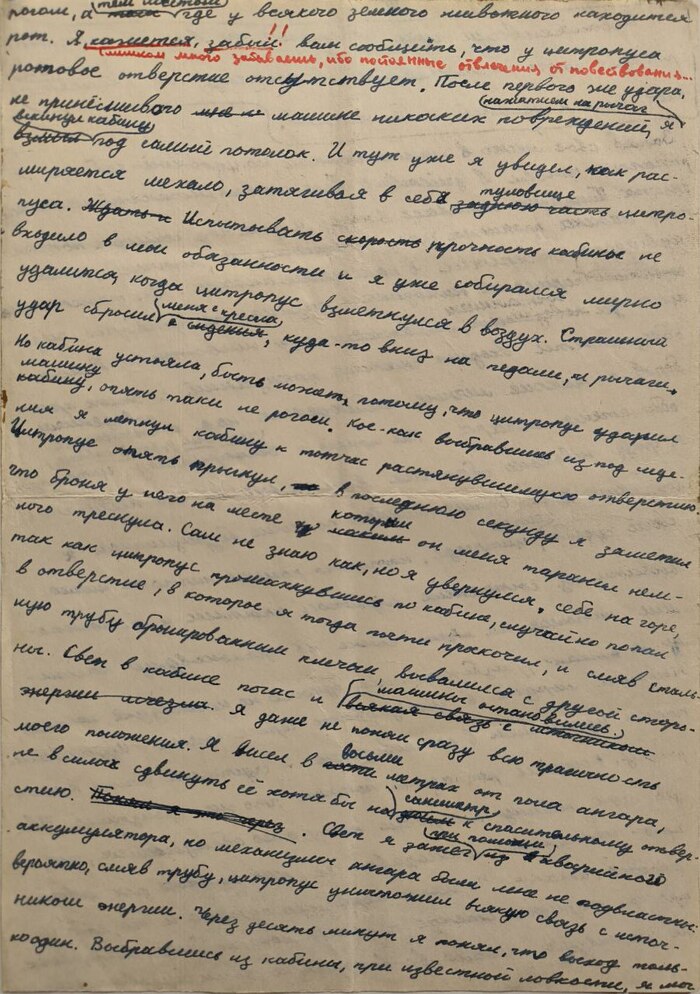 тем местом
рогом, а там где у всякого земного животного находится
рот. Я, кажется, забыл!! вам сообщить, что у цитропуса
слишком много забываешь, ибо постоянные отвлечения от повествования...
ротовое отверстие отсутствует. После первого же удара,
не принёсшего машине никаких повреждений, я
нажатием на рычаг
вскинул кабину
взмыл под самый потолок. И тут уже я увидел, как рас-
миряется жехало, затягивая в себя туловище заднюю часть цитро-
пуса. Ждать и Испытывать скорость прочность кабины не
входило в мои обязанности и я уже собирался мирно
удалится, когда цитропус взметнулся в воздух. Страшный
удар сбросил меня с кресла с сиденья, куда-то вниз на педали, и рычаги.
Но кабина устояла, быть может, потому, что цитропус ударил
машину
кабину, опять таки не рогом. Кое-как выбравшись из под сиде-
ния я метнул кабину к тотчас растянувшемуся отверстию.
Цитропус опять прыгнул, в последнюю секунду я заметил
что броня у него на месте которым он меня таранил нем-
ного треснула. Сам не знаю как, но я увернулся, себе на горе,
так как цитропус промахнувшись по кабине, случайно попал
в отверстие, в которое я тогда почти проскочил, и смяв сталь-
ную трубу бронированным плечом, вывалился с другой сторо-
ны. Свет в кабине погас и машины остановились. всякая связь с источником
энергии исчезла. Я даже не понял сразу всю трагичность
моего положения. Я висел в восьми метрах от пола ангара,
не в силах сдвинуть её хотя бы на сантиметр к спасительному отвер-
стию. Понял я это через . Свет я зажег при помощи из аварийного
аккумулятора, но механизмы ангара были мне не подвластны:
вероятно, смяв трубу, цитропус уничтожил всякую связь с источ-
ником энергии. Через десять минут я понял, что выход толь-
ко один. Выбравшись из кабины, при известной ловкости, я мог